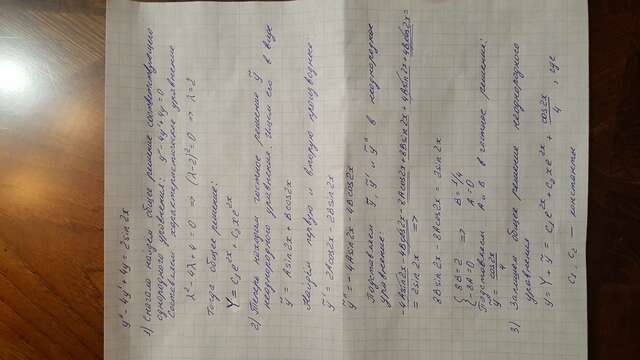 y″-4y′+4y = 2sin2x
1) Сначала найдем общее решение соответствующего
однородного уравнения: y″-4y′+4y=0
Составляем характеристическое уравнение
λ²-4λ+4=0 ⇒ (λ-2)²=0 ⇒ λ=2
Тогда общее решение:
Y = C₁e²ˣ + C₂xe²ˣ
2) Теперь находим частное решение ỹ
неоднородного уравнения. Ищем его в виде
ỹ = Asin2x + Bcos2x
Найдем первую и вторую производную:
ỹ′ = 2Acos2x - 2Bsin2x
ỹ″ = -4Asin2x - 4Bcos2x
Подставляем ỹ, ỹ′ и ỹ″ в неоднородное
уравнение:
-4Asin2x - 4Bcos2x - 8Acos2x + 8Bsin2x + 4Asin2x + 4Bcos2x =
= 2sin2x ⇒
8Bsin2x - 8Acos2x = 2sin2x
{ 8B=2 ⇒ B=1/4
{ -8A=0 A=0
Подставляем A и B в частное решение:
ỹ = cos2x/4
3) Запишем общее решение неоднородного
уравнения
y = Y + ỹ = C₁e²ˣ + C₂xe²ˣ + cos2x/4, где
C₁, C₂ — константы